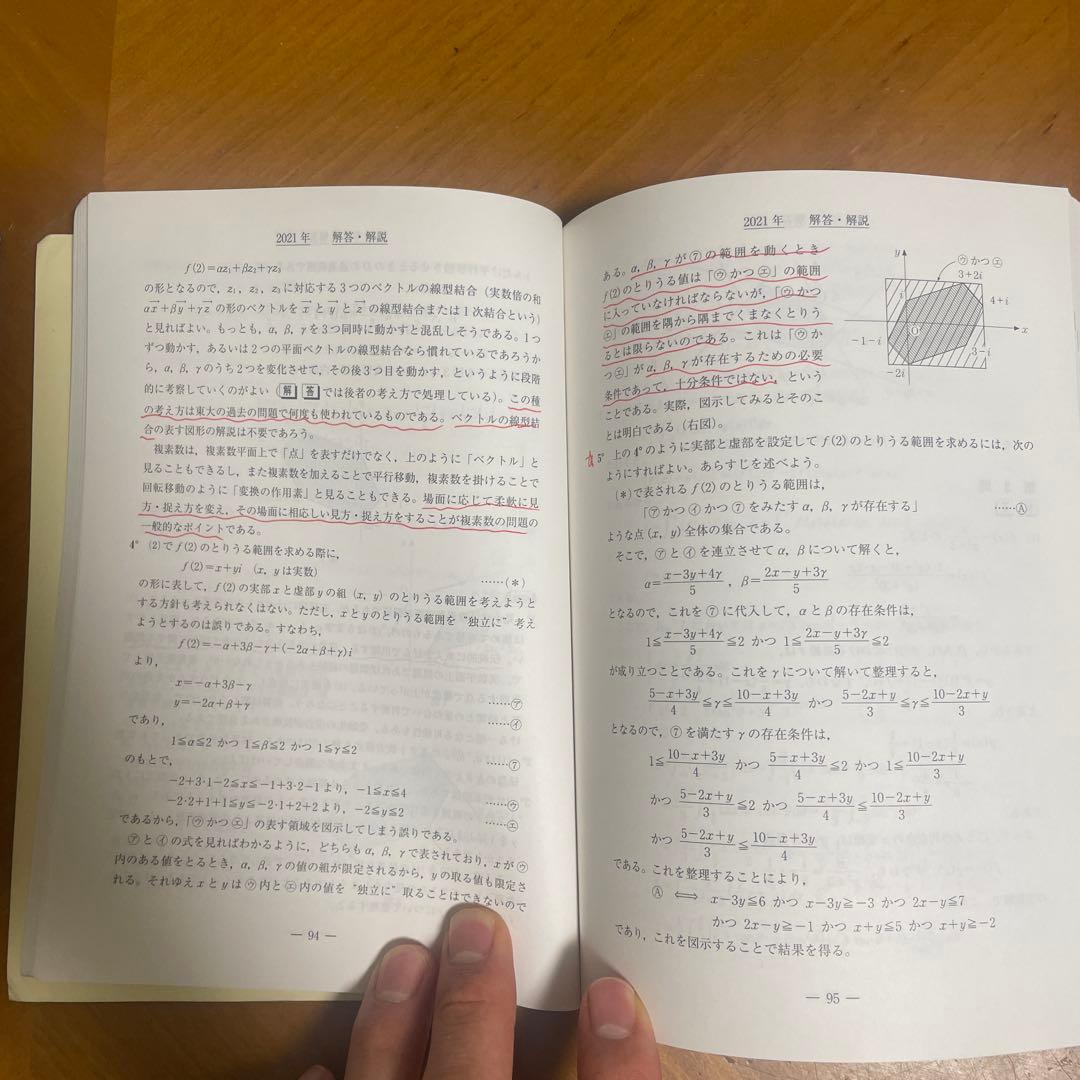 2021年 解答・解説
f(2)=αz₁+βz₂+γz₃
の形となるので，z₁，z₂，z₃に対応する3つのベクトルの線型結合（実数倍の和
αx→+βy→+γz→ の形のベクトルを x→ と y→ と z→ の線型結合または1次結合という）
と見ればよい。もっとも，α，β，γを3つ同時に動かすと混乱しそうである。1つ
ずつ動かす，あるいは2つの平面ベクトルの線型結合なら慣れているであろうか
ら，α，β，γのうち2つを変化させて，その後3つ目を動かす，というように段階
的に考察していくのがよい（解答では後者の考え方で処理している）。この種
の考え方は東大の過去の問題で何度も使われているものである。ベクトルの線型結
合の表す図形の解説は不要であろう。
複素数は，複素数平面上で「点」を表すだけでなく，上のように「ベクトル」と
見ることもできるし，また複素数を加えることで平行移動，複素数を掛けることで
回転移動のように「変換の作用素」と見ることもできる。場面に応じて柔軟に見
方・捉え方を変え，その場面に相応しい見方・捉え方をすることが複素数の問題の
一般的なポイントである。
4° (2)でf(2)のとりうる範囲を求める際に，
f(2)=x+yi （x，yは実数） ……(*)
の形に表して，f(2)の実部xと虚部yの組(x，y)のとりうる範囲を考えようと
する方針も考えられなくはない。ただし，xとyのとりうる範囲を“独立に”考え
ようとするのは誤りである。すなわち，
f(2)=−α+3β−γ+(−2α+β+γ)i
より，
x=−α+3β−γ ……㋐
y=−2α+β+γ ……㋑
であり，
1≦α≦2 かつ 1≦β≦2 かつ 1≦γ≦2 ……⑦
のもとで，
−2+3・1−2≦x≦−1+3・2−1より，−1≦x≦4 ……㋒
−2・2+1+1≦y≦−2・1+2+2より，−2≦y≦2 ……㋓
であるから，「㋒かつ㋓」の表す領域を図示してしまう誤りである。
㋐と㋑の式を見ればわかるように，どちらもα，β，γで表されており，xが㋒
内のある値をとるとき，α，β，γの値の組が限定されるから，yの取る値も限定さ
れる。それゆえxとyは㋒内と㋓内の値を“独立に”取ることはできないので
— 94 —
2021年 解答・解説
ある。α，β，γが⑦の範囲を動くとき
f(2)のとりうる値は「㋒かつ㋓」の範囲
に入っていなければならないが，「㋒かつ
㋓」の範囲を隅から隅までくまなくとりう
るとは限らないのである。これは「㋒か
つ㋓」がα，β，γが存在するための必要
条件であって，十分条件ではない，という
ことである。実際，図示してみるとそのこ
とは明白である（右図）。
y
㋒かつ㋓
3+2i
i
4+i
O
x
−1−i
3−i
−2i
5° 上の4°のように実部と虚部を設定してf(2)のとりうる範囲を求めるには，次の
ようにすればよい。あらすじを述べよう。
(*)で表されるf(2)のとりうる範囲は，
「㋐かつ㋑かつ⑦をみたすα，β，γが存在する」 ……Ⓐ
ような点(x，y)全体の集合である。
そこで，㋐と㋑を連立させてα，βについて解くと，
α=(x−3y+4γ)/5 ，β=(2x−y+3γ)/5
となるので，これを⑦に代入して，αとβの存在条件は，
1≦(x−3y+4γ)/5≦2 かつ 1≦(2x−y+3γ)/5≦2
が成り立つことである。これをγについて解いて整理すると，
(5−x+3y)/4≦γ≦(10−x+3y)/4 かつ (5−2x+y)/3≦γ≦(10−2x+y)/3
となるので，⑦を満たすγの存在条件は，
1≦(10−x+3y)/4 かつ (5−x+3y)/4≦2 かつ 1≦(10−2x+y)/3
かつ (5−2x+y)/3≦2 かつ (5−x+3y)/4≦(10−2x+y)/3
かつ (5−2x+y)/3≦(10−x+3y)/4
である。これを整理することにより，
Ⓐ ⟺ x−3y≦6 かつ x−3y≧−3 かつ 2x−y≦7
かつ 2x−y≧−1 かつ x+y≦5 かつ x+y≧−2
であり，これを図示することで結果を得る。
— 95 —